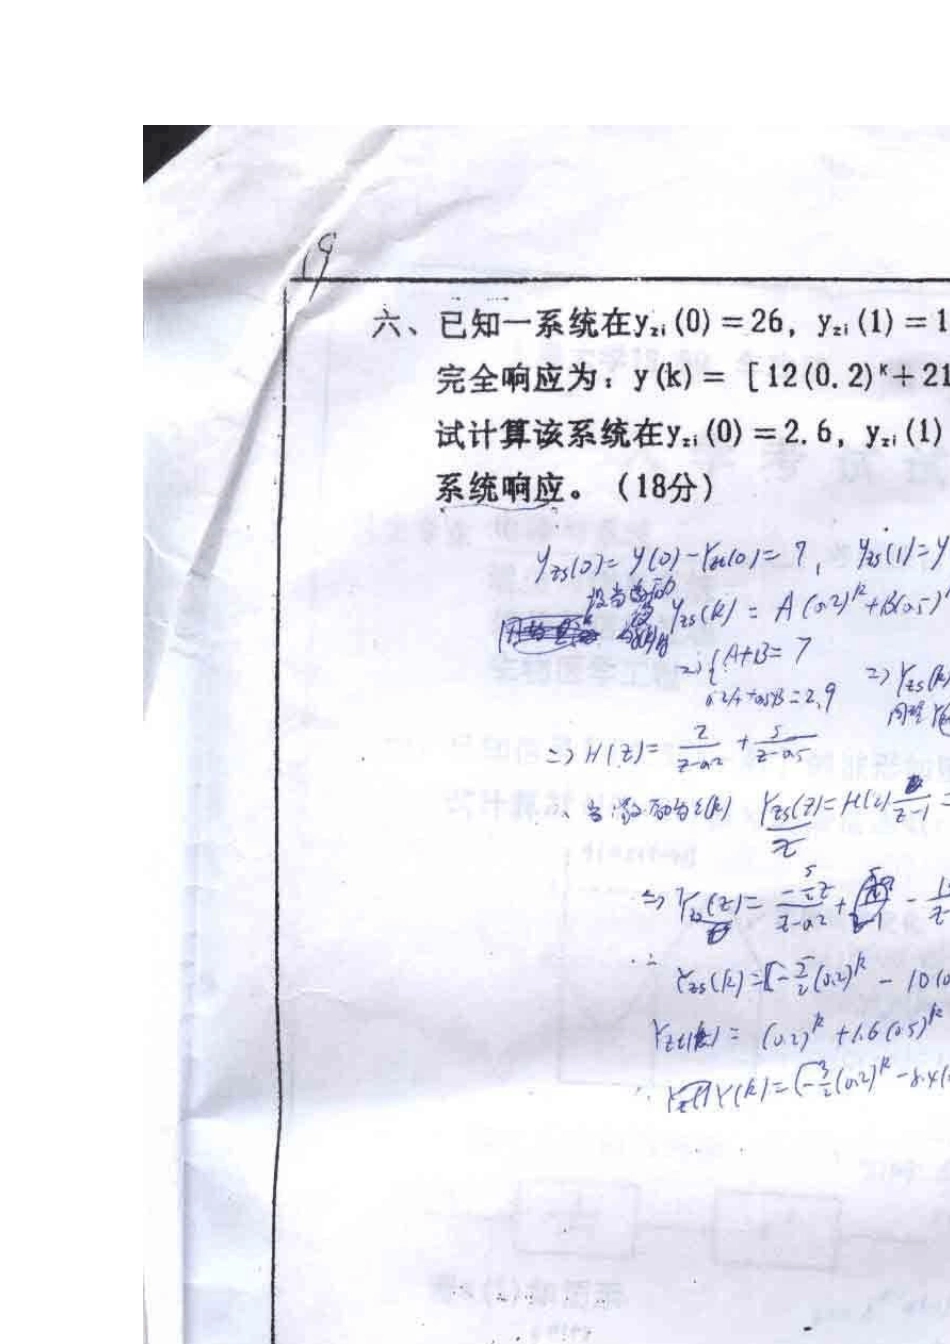 19
六、已知一系统在yzi(0)=26, yzi(1)=1
完全响应为: y(k)= [12(0.2)ᵏ+21
试计算该系统在yzi(0)=2.6, yzi(1)
系统响应。(18分)
yzs(0)= y(0)-yzi(0)= 7, yzs(1)=y
yzs(k) = A(0.2)ᵏ+B(0.5)
=>{A+B=7 => yzs(k
0.2A+0.5B=2.9 同理
=> H(z)= 2/(z-0.2) + 5/(z-0.5)
当激励为ε(k) Yzs(z)/z=H(z) /(z-1) =
=> Yzs(z)= -5/2z/(z-0.2) +
∴
Yzs(k)=[-5/2(0.2)ᵏ - 10(0
Yzi(k)= (0.2)ᵏ+1.6(0.5)ᵏ
Y(k)=(-3/2(0.2)ᵏ-8.4(